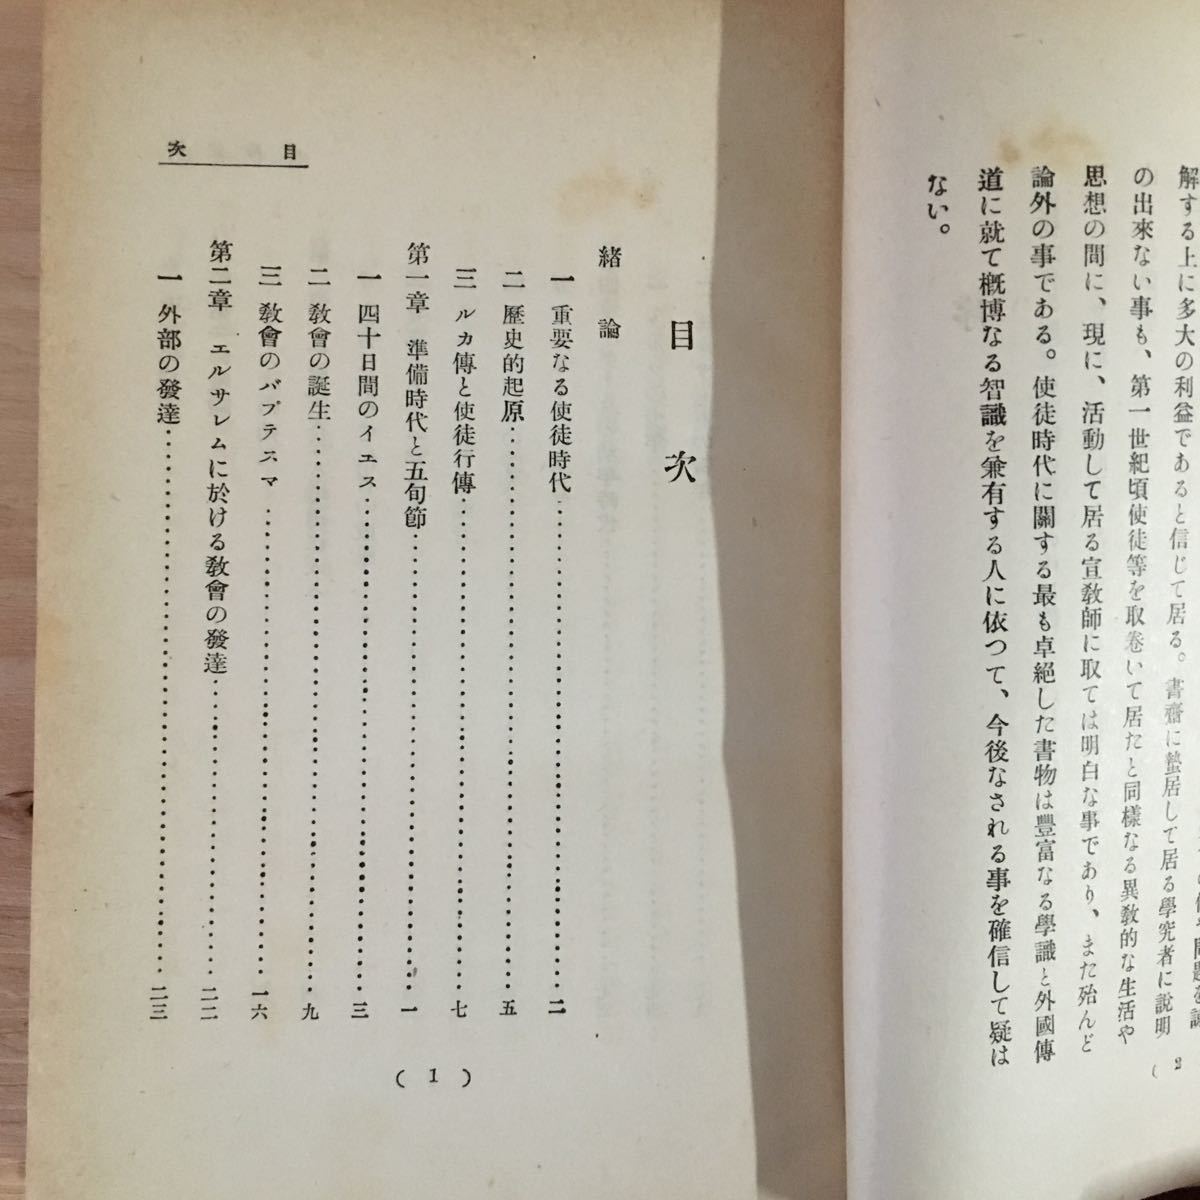 解する上に多大の利益であると信じて居る。書齋に蟄居して居る學究者に說明
の出來ない事も、第一世紀頃使徒等を取卷いて居たと同樣なる異敎的な生活や
思想の間に、現に、活動して居る宣敎師に取ては明白な事であり、また殆んど
論外の事である。使徒時代に關する最も卓絕した書物は豐富なる學識と外國傳
道に就て槪博なる智識を兼有する人に依つて、今後なされる事を確信して疑は
ない。
( 2
目次
目次
緖論
一 重要なる使徒時代……二
二 歷史的起原……五
三 ルカ傳と使徒行傳……七
第一章 準備時代と五旬節……一
一 四十日間のイエス……三
二 敎會の誕生……九
三 敎會のバプテスマ……一六
第二章 エルサレムに於ける敎會の發達……二二
一 外部の發達……二三
( 1 )